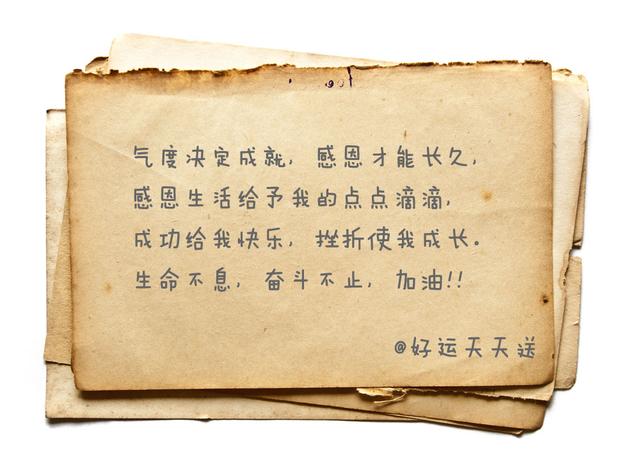 气度决定成就，感恩才能长久，
感恩生活给予我的点点滴滴，
成功给我快乐，挫折使我成长。
生命不息，奋斗不止，加油!!
@好运天天送